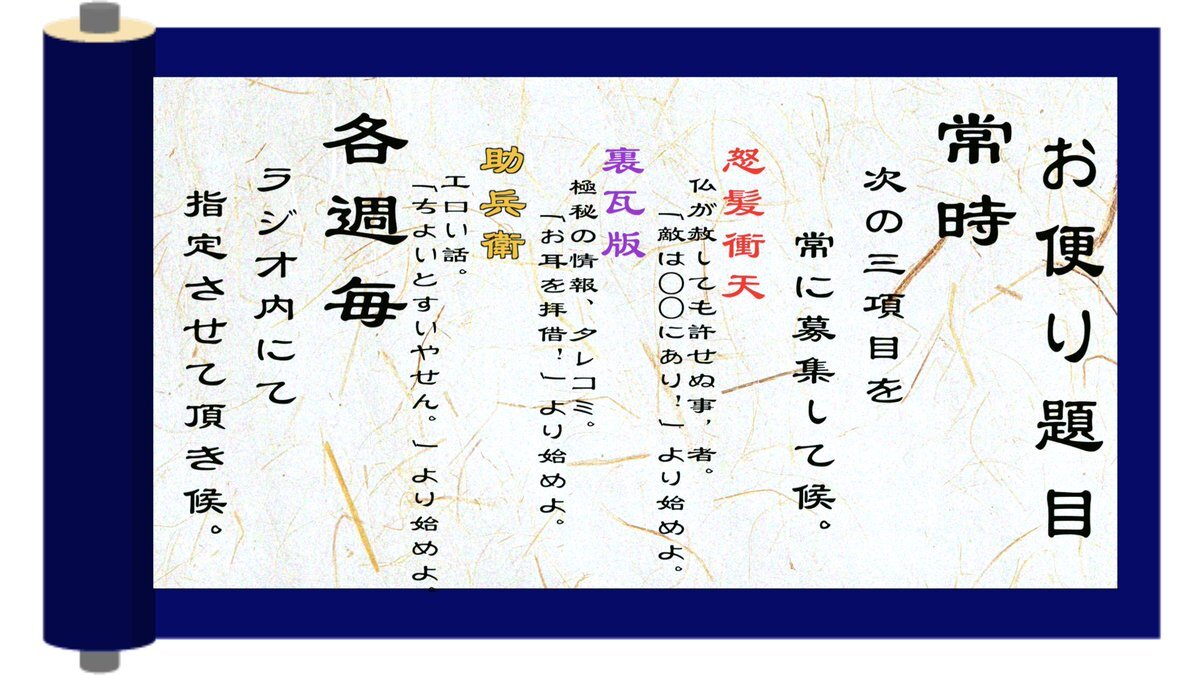 お便り題目
常時
次の三項目を
常に募集して候。
怒髪衝天
仏が赦しても許せぬ事，者。
「敵は〇〇にあり！」より始めよ。
裏瓦版
極秘の情報、タレコミ。
「お耳を拝借！」より始めよ。
助兵衛
エロい話。
「ちよいとすいやせん。」より始めよ。
各週毎
ラジオ内にて
指定させて頂き候。